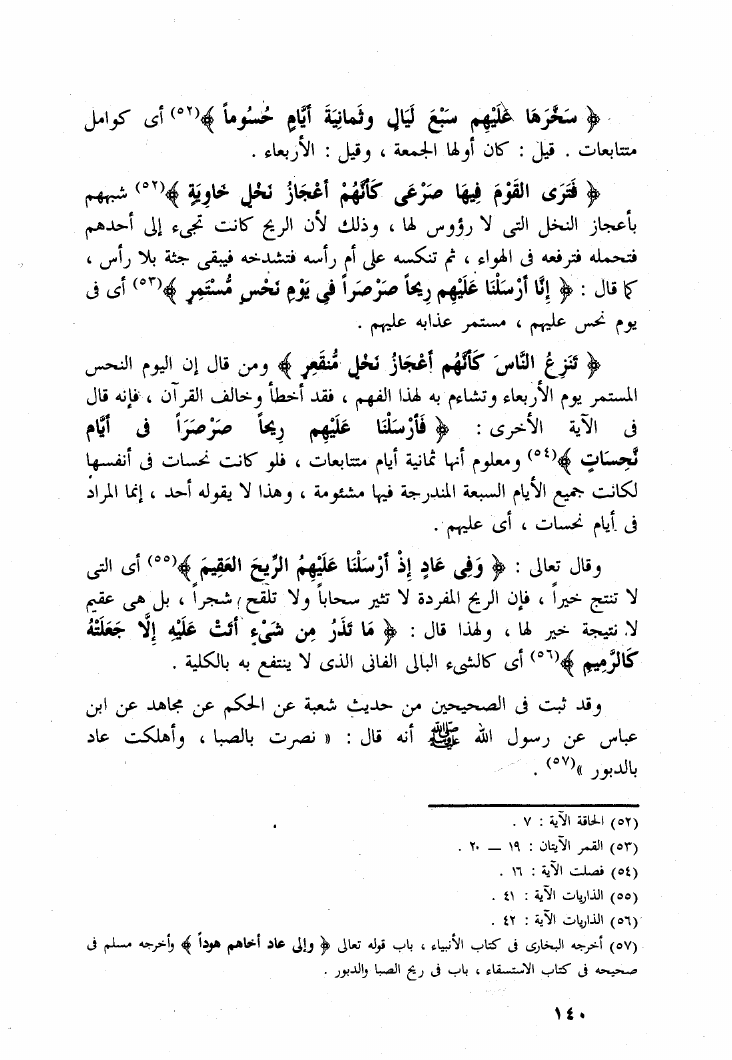 ﴿ سَخَّرَهَا عَلَيْهِم سَبْعَ لَيَالٍ وثَمانِيَةَ أيَّامٍ حُسُوماً ﴾(٥٢) أى كوامل
متتابعات . قيل : كان أولها الجمعة ، وقيل : الأربعاء .
﴿ فَتَرَى القَوْمَ فِيهَا صَرْعَى كَأنَّهُمْ أعْجَازُ نَخْلٍ خَاوِيَةٍ ﴾(٥٢) شبههم
بأعجاز النخل التى لا رؤوس لها ، وذلك لأن الريح كانت تجىء إلى أحدهم
فتحمله فترفعه فى الهواء ، ثم تنكسه على أم رأسه فتشدخه فيبقى جثة بلا رأس ،
كما قال : ﴿ إنَّا أرْسَلْنَا عَلَيْهِم رِيحاً صَرْصَراً فِي يَوْمِ نَحْسٍ مُّسْتَمِرٍ ﴾(٥٣) أى فى
يوم نحس عليهم ، مستمر عذابه عليهم .
﴿ تَنزِعُ النَّاسَ كَأنَّهُم أعْجَازُ نَخْلٍ مُّنقَعِرٍ ﴾ ومن قال إن اليوم النحس
المستمر يوم الأربعاء وتشاءم به لهذا الفهم ، فقد أخطأ وخالف القرآن ، فإنه قال
فى الآية الأخرى : ﴿ فَأرْسَلْنَا عَلَيْهِم رِيحاً صَرْصَرَاً فى أيَّام
نَّحِسَاتٍ ﴾(٥٤) ومعلوم أنها ثمانية أيام متتابعات ، فلو كانت نحسات فى أنفسها
لكانت جميع الأيام السبعة المندرجة فيها مشئومة ، وهذا لا يقوله أحد ، إنما المراد
فى أيام نحسات ، أى عليهم .
وقال تعالى : ﴿ وَفِي عَادٍ إذْ أرْسَلْنَا عَلَيْهِمُ الرِّيحَ العَقِيمَ ﴾(٥٥) أى التى
لا تنتج خيراً ، فإن الريح المفردة لا تثير سحاباً ولا تلقح شجراً ، بل هى عقيم
لا نتيجة خير لها ، ولهذا قال : ﴿ مَا تَذَرُ مِن شَيْءٍ أتَتْ عَلَيْهِ إلَّا جَعَلَتْهُ
كَالرَّمِيمِ ﴾(٥٦) أى كالشىء البالى الفانى الذى لا ينتفع به بالكلية .
وقد ثبت فى الصحيحين من حديث شعبة عن الحكم عن مجاهد عن ابن
عباس عن رسول الله ﷺ أنه قال : « نصرت بالصبا ، وأهلكت عاد
بالدبور »(٥٧) .
(٥٢) الحاقة الآية : ٧ .
(٥٣) القمر الآيتان : ١٩ — ٢٠ .
(٥٤) فصلت الآية : ١٦ .
(٥٥) الذاريات الآية : ٤١ .
(٥٦) الذاريات الآية : ٤٢ .
(٥٧) أخرجه البخارى فى كتاب الأنبياء ، باب قوله تعالى ﴿ وإلى عاد أخاهم هوداً ﴾ وأخرجه مسلم فى
صحيحه فى كتاب الاستسقاء ، باب فى ريح الصبا والدبور .
١٤٠